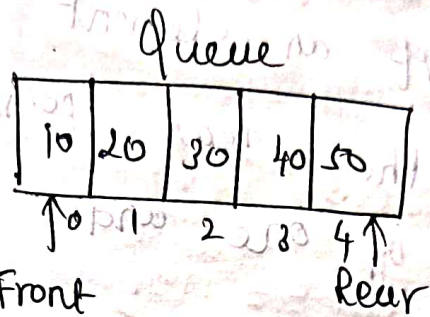 Queue
10 20 30 40 50
0 1 2 3 4
Front Rear